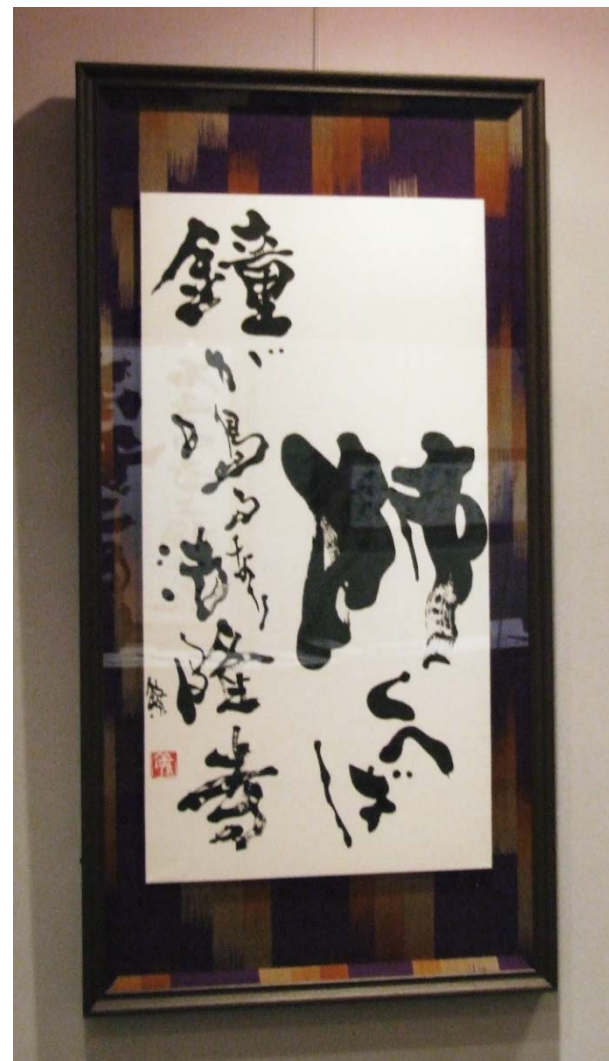 柿くへば
鐘が鳴るなり法隆寺